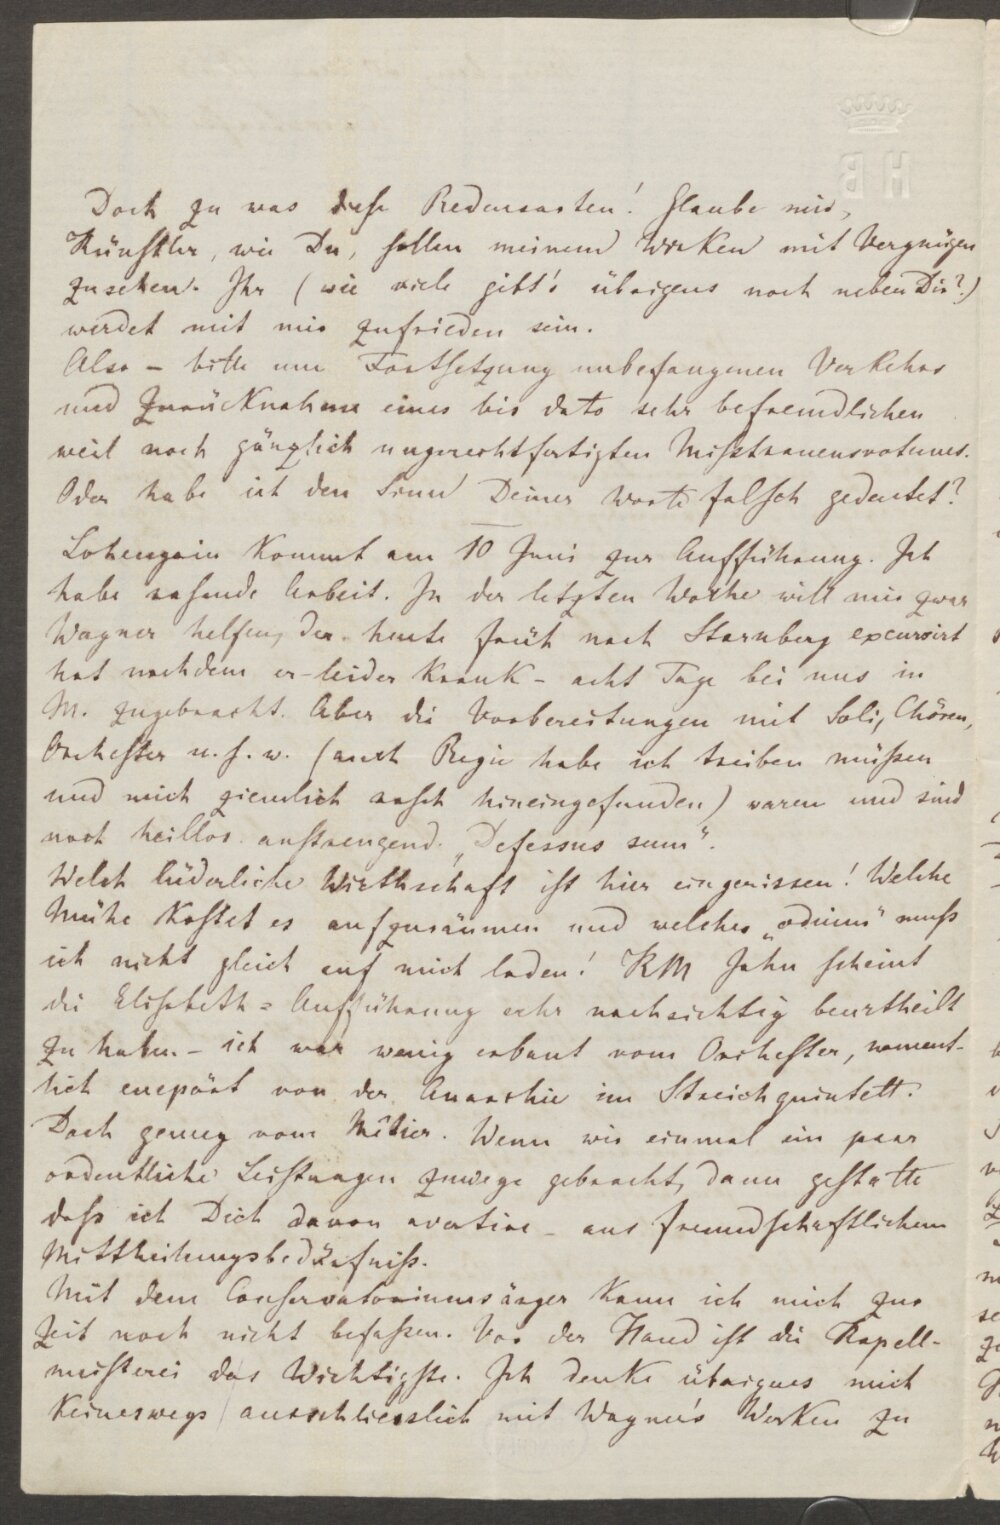 H B
Doch zu was diese Redensarten! Glaube mir,
Künstler, wie Du, sollen meinem Wirken mit Vergnügen
zusehen. Ihr (wie viele gibt's übrigens noch neben Dir?)
werdet mit mir zufrieden sein.
Also – bitte um Fortsetzung unbefangenen Verkehrs
und Zurücknahme eines bis dato sehr befremdlichen
weil noch gänzlich ungerechtfertigten Mißtrauensvotums.
Oder habe ich den Sinn Deiner Worte falsch gedeutet?
Lohengrin kommt am 10 Juni zur Aufführung. Ich
habe rasende Arbeit. In der letzten Woche will mir zwar
Wagner helfen, der heute früh nach Starnberg excursirt
hat nachdem er – leider krank – acht Tage bei uns in
M. zugebracht. Aber die Vorbereitungen mit Soli, Chören,
Orchester u. s. w. (auch Regie habe ich treiben müßen
und mich ziemlich rasch hineingefunden) waren und sind
noch heillos anstrengend. „Defessus sum".
Welch lüderliche Wirthschaft ist hier eingerissen! Welche
Mühe kostet es aufzuräumen und welches „odium" muß
ich nicht gleich auf mich laden! KM Jahn scheint
die Elisabeth = Aufführung sehr nachsichtig beurtheilt
zu haben – ich war wenig erbaut vom Orchester, nament-
lich empört von der Anarchie im Streichquintett.
Doch genug vom Métier. Wenn wir einmal ein paar
ordentliche Leistungen zuwege gebracht, dann gestatte
daß ich Dich davon avertire – aus freundschaftlichem
Mittheilungsbedürfniß.
Mit dem Conservatoriumsärger kann ich mich zur
Zeit noch nicht befaßen. Vor der Hand ist die Kapell-
meisterei das Wichtigste. Ich denke übrigens mich
keineswegs ausschliesslich mit Wagner's Werken zu